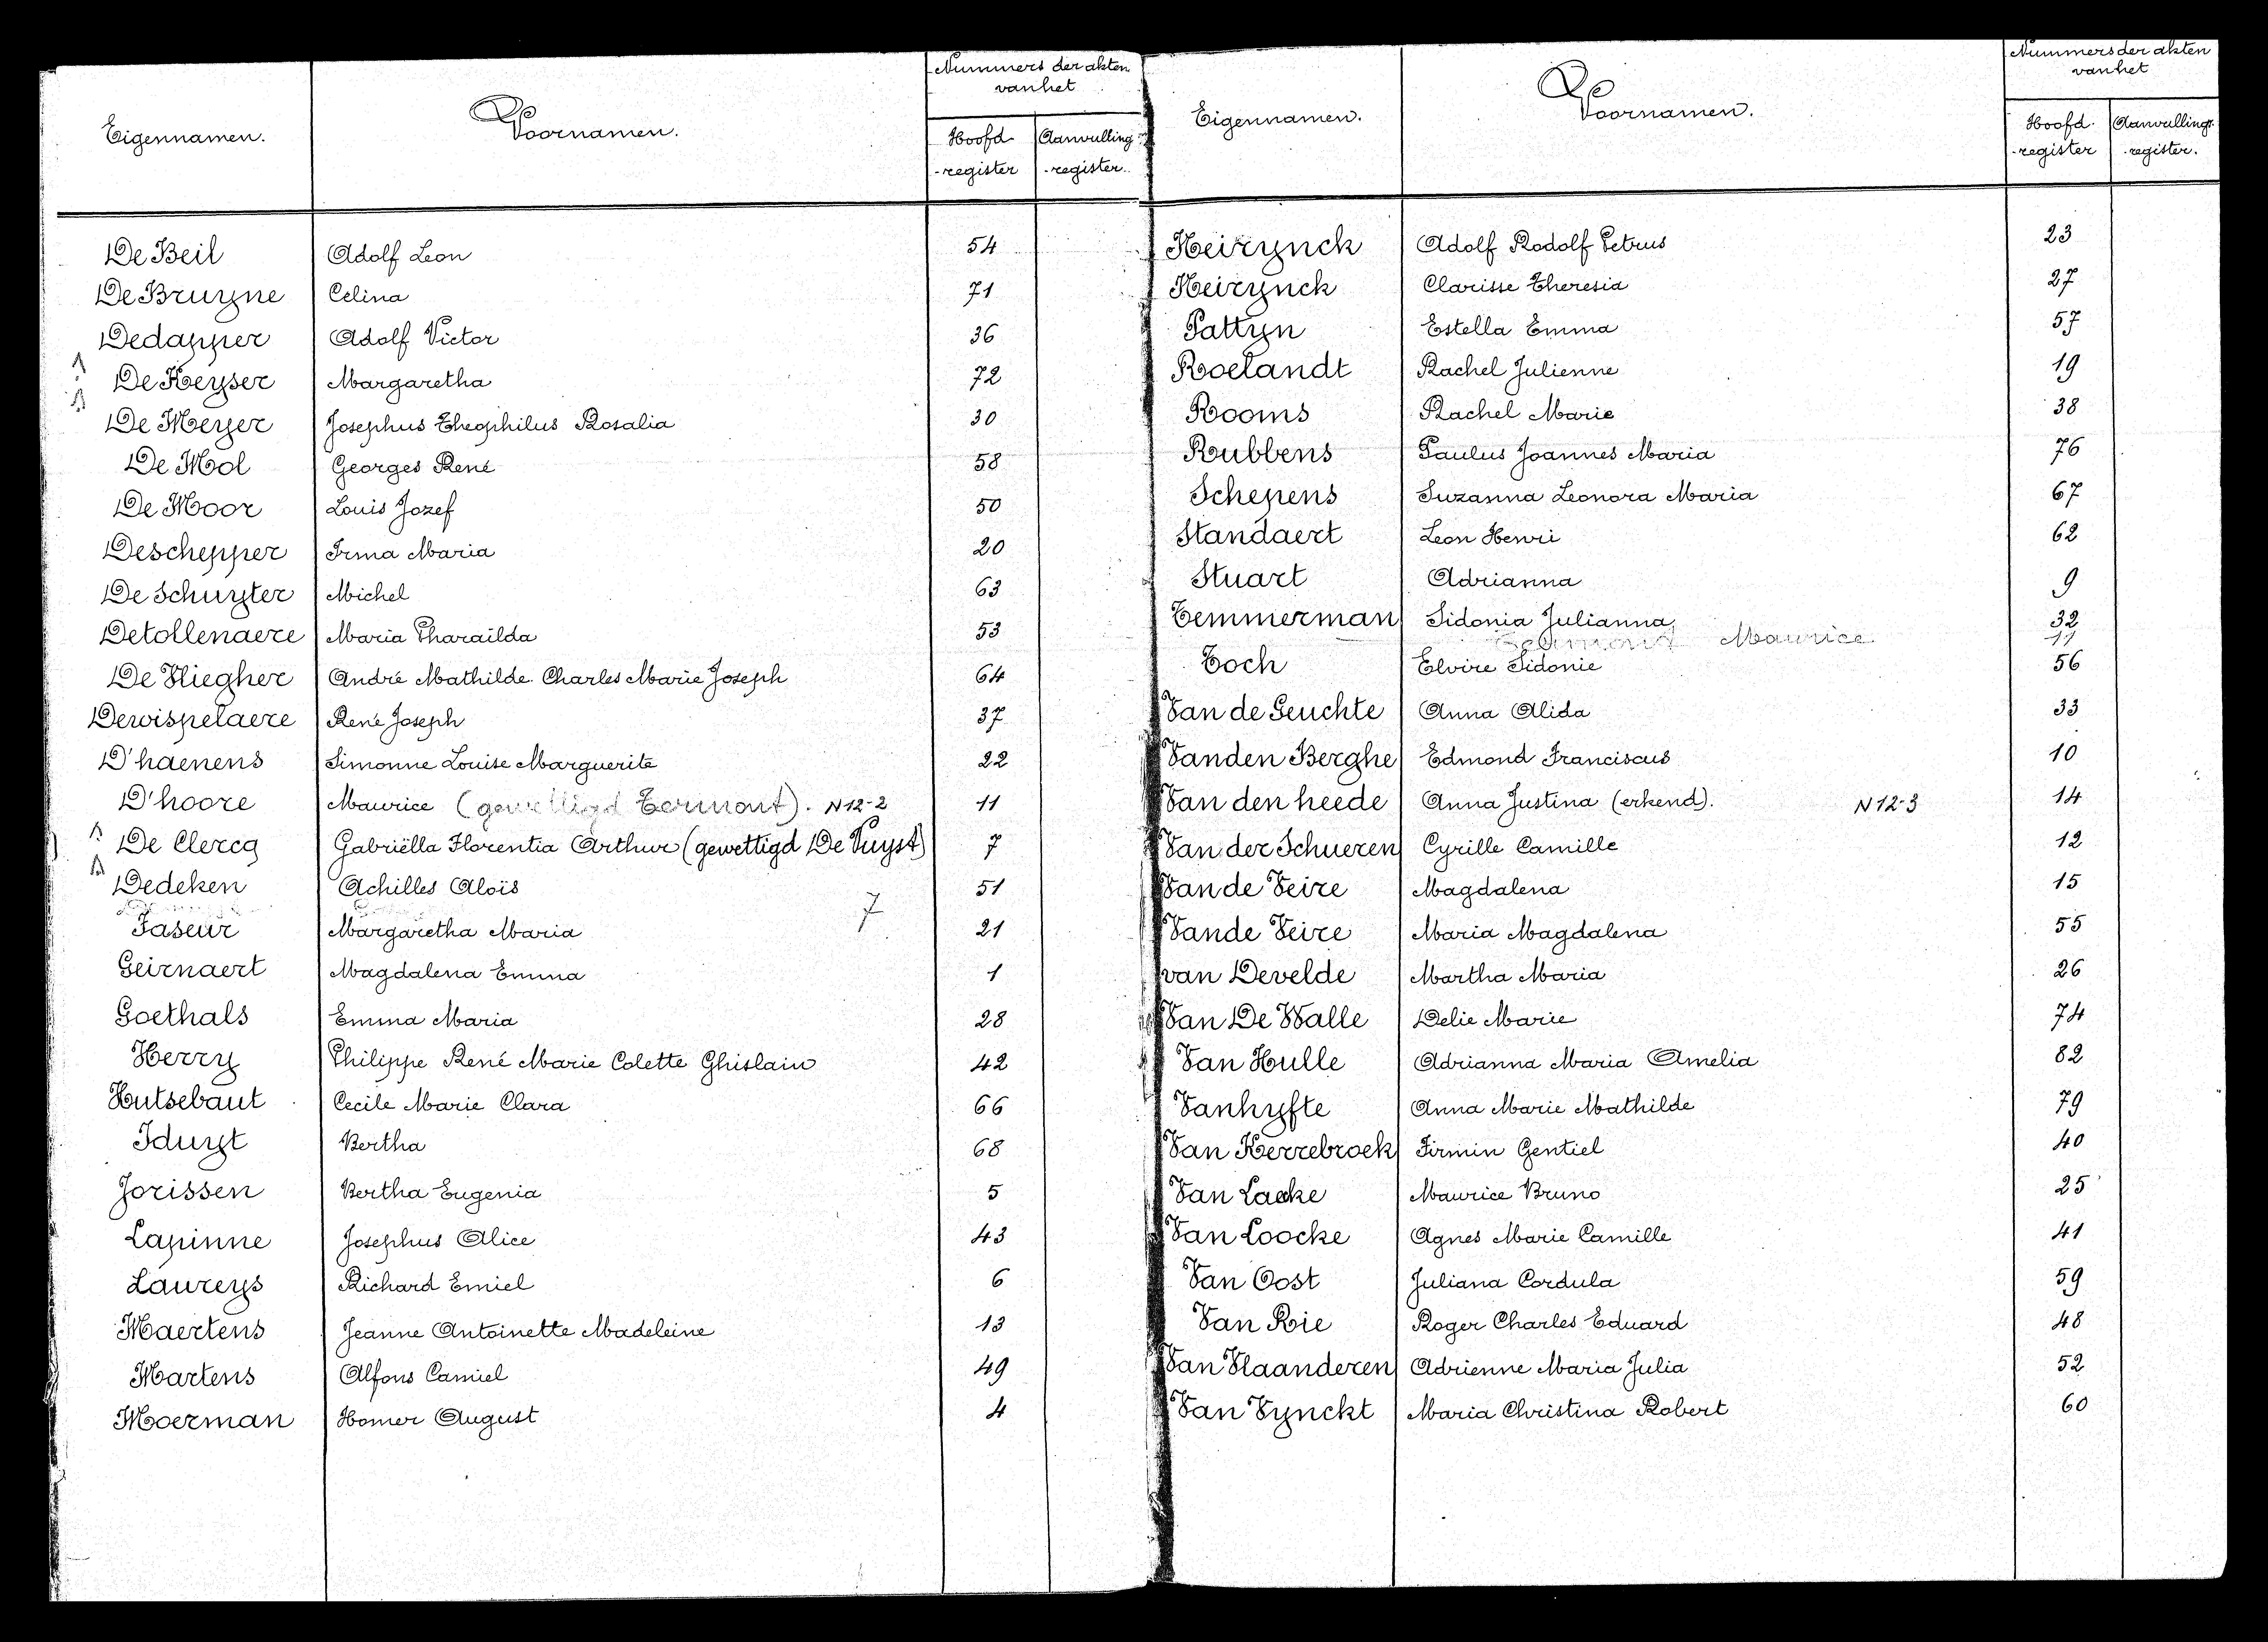 Eigennamen.
Voornamen.
Nummers der akten
van het
Hoofd-
-register
Aanvulling-
-register.
De Beil Adolf Leon 54
De Bruyne Celina 71
Dedapper Adolf Victor 36
De Keyser Margaretha 72
De Meyer Josephus Theophilus Rosalia 30
De Mol Georges René 58
De Moor Louis Jozef 50
Deschepper Irma Maria 20
De Schuyter Michel 63
Detollenaere Maria Pharaïlda 53
De Vliegher André Mathilde Charles Marie Joseph 64
Dewispelaere René Joseph 37
D'haenens Simonne Louise Marguerite 22
D'hoore Maurice (gewettigd Termont). N 12-2 11
De Clercq Gabriëlla Florentia Arthur (gewettigd De Vuyst) 7
Dedeken Achilles Aloïs 51
7
Faseur Margaretha Maria 21
Geirnaert Magdalena Emma 1
Goethals Emma Maria 28
Herry Philippe René Marie Colette Ghislain 42
Hutsebaut Cecile Marie Clara 66
Iduyt Bertha 68
Jorissen Bertha Eugenia 5
Lapinne Josephus Alice 43
Laureys Richard Emiel 6
Maertens Jeanne Antoinette Madeleine 13
Martens Alfons Camiel 49
Moerman Homer August 4
Eigennamen.
Voornamen.
Nummers der akten
van het
Hoofd-
-register
Aanvullings-
-register.
Heirynck Adolf Rodolf Petrus 23
Heirynck Clarisse Theresia 27
Pattyn Estella Emma 57
Roelandt Rachel Julienne 19
Rooms Rachel Marie 38
Rubbens Paulus Joannes Maria 76
Schepens Suzanna Leonora Maria 67
Standaert Leon Henri 62
Stuart Adrianna 9
Temmerman Sidonia Julianna 32
Maurice 11
Toch Elvire Sidonie 56
Van de Geuchte Anna Alida 33
Vanden Berghe Edmond Franciscus 10
Van den heede Anna Justina (erkend). N 12-3 14
Van der Schueren Cyrille Camille 12
Van de Veire Magdalena 15
Vande Veire Maria Magdalena 55
van Develde Martha Maria 26
Van De Walle Delie Marie 74
Van Hulle Adrianna Maria Amelia 82
Vanhyfte Anna Marie Mathilde 79
Van Kerrebroek Firmin Gentiel 40
Van Lacke Maurice Bruno 25
Van Loocke Agnes Marie Camille 41
Van Oost Juliana Cordula 59
Van Rie Roger Charles Eduard 48
Van Vlaanderen Adrienne Maria Julia 52
Van Vynckt Maria Christina Robert 60